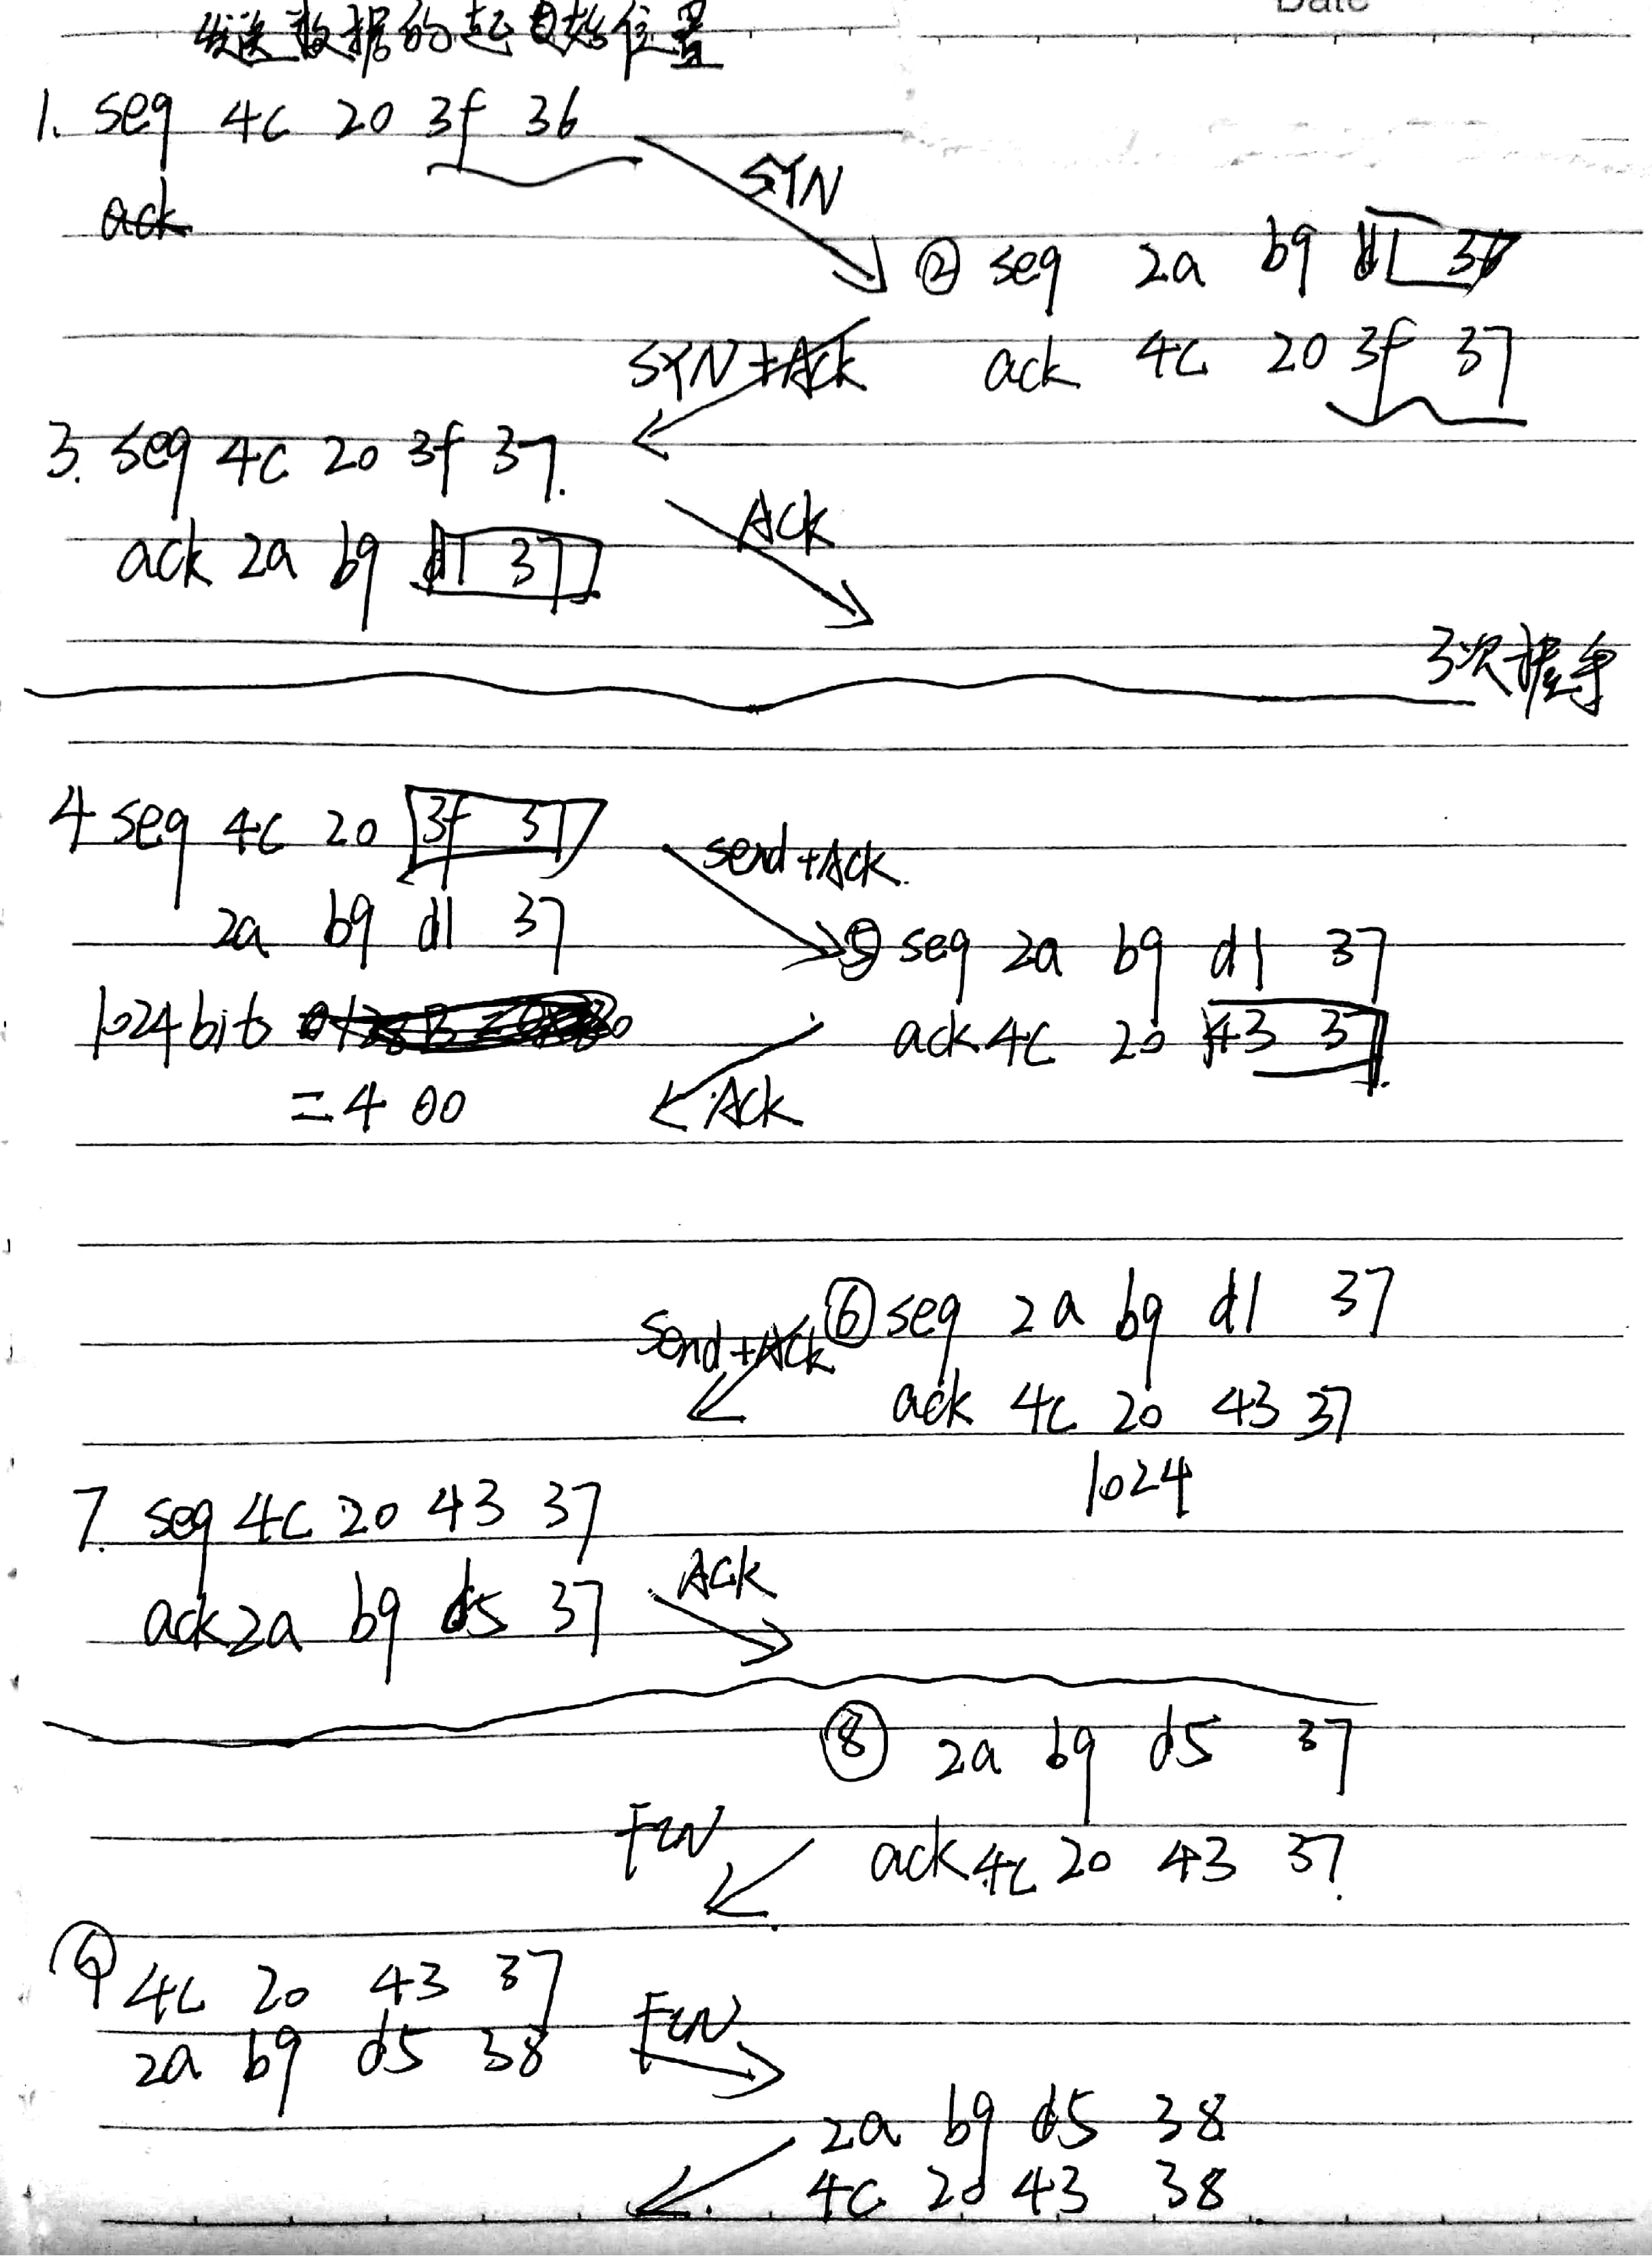 Date
发送数据的起始位置
1. seq 4c 20 3f 36
ack
SYN
② seq 2a b9 d1 36
SYN+Ack
ack 4c 20 3f 37
3. seq 4c 20 3f 37.
ack 2a b9 d1 37
Ack
3次握手
4 seq 4c 20 3f 37
send+Ack.
2a b9 d1 37
⑤ seq 2a b9 d1 37
1024 bit
ack 4c 20 43 37
=4 00
Ack
⑥ seq 2a b9 d1 37
Send+Ack
ack 4c 20 43 37
1024
7. seq 4c 20 43 37
ack 2a b9 d5 37
Ack
⑧ 2a b9 d5 37
FIN
ack 4c 20 43 37.
⑨ 4c 20 43 37
FIN
2a b9 d5 38
2a b9 d5 38
4c 20 43 38